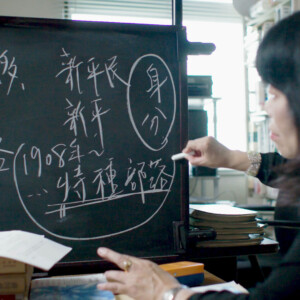 多、
新平民
新平
身分
1908年～
… 特種部落